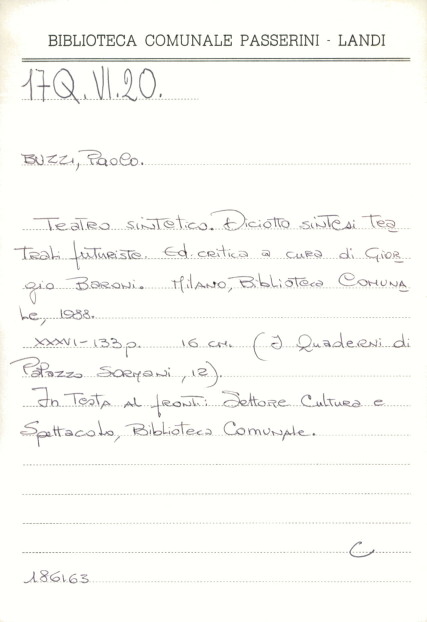 BIBLIOTECA COMUNALE PASSERINI - LANDI
17Q.VI.20.
BUZZI, Paolo.
Teatro sintetico. Diciotto sintesi tea
trali futuriste. Ed. critica a cura di Gior
gio Baroni. Milano, Biblioteca Comuna
le, 1988.
XXXVI-133 p. 16 cm. (I Quaderni di
Palazzo Sormani, 12).
In testa al front.: Settore Cultura e
Spettacolo, Biblioteca Comunale.
C
186163